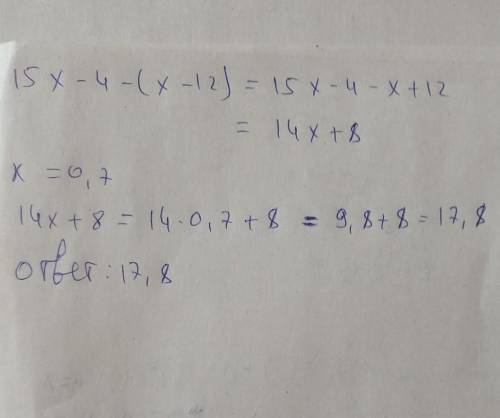 15x - 4 - (x - 12) = 15x - 4 - x + 12
= 14x + 8
x = 0,7
14x + 8 = 14 · 0,7 + 8 = 9,8 + 8 = 17,8
ответ: 17,8